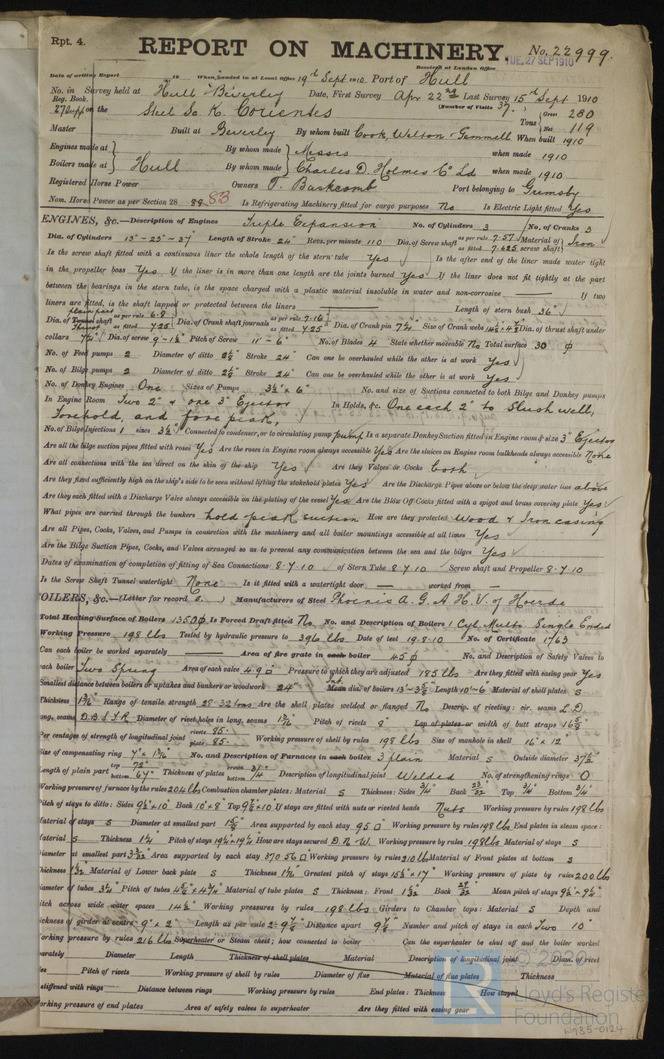 Rpt. 4.
REPORT ON MACHINERY.
No. 22999.
Received at London Office
TUE. 27 SEP 1910
Date of writing Report 19 When handed in at Local Office 19th Sept 1910 Port of Hull
No. in Survey held at Hull Beverley Date, First Survey Apr 22nd Last Survey 15th Sept 1910
Reg. Book. (Number of Visits 37)
on the Steel Sc K. Corientes Tons Gross 280 Net 119
Master Built at Beverley By whom built Cook, Welton & Gemmell When built 1910
Engines made at Hull By whom made Messrs when made 1910
Boilers made at By whom made Charles D. Holmes & Co Ld when made 1910
Registered Horse Power Owners T. Baskcomb Port belonging to Grimsby
Nom. Horse Power as per Section 28 88 83 Is Refrigerating Machinery fitted for cargo purposes No Is Electric Light fitted Yes
ENGINES, &c.—Description of Engines Triple Expansion No. of Cylinders 3 No. of Cranks 3
Dia. of Cylinders 13"-23"-37" Length of Stroke 24" Revs. per minute 110 Dia. of Screw shaft as per rule 7.57 as fitted 7.625 Material of screw shaft Iron
Is the screw shaft fitted with a continuous liner the whole length of the stern tube Yes Is the after end of the liner made water tight
in the propeller boss Yes If the liner is in more than one length are the joints burned Yes If the liner does not fit tightly at the part
between the bearings in the stern tube, is the space charged with a plastic material insoluble in water and non-corrosive If two
liners are fitted, is the shaft lapped or protected between the liners Length of stern bush 36"
Dia. of Tunnel shaft as per rule 6.8 as fitted 7.25 Dia. of Crank shaft journals as per rule 7.16 as fitted 7.25 Dia. of Crank pin 7¼" Size of Crank webs Dia. of thrust shaft under
collars 7¼" Dia. of screw 9'-1½" Pitch of Screw 11'-6" No. of Blades 4 State whether moveable No Total surface 30 ф
No. of Feed pumps 2 Diameter of ditto 2½" Stroke 24" Can one be overhauled while the other is at work Yes
No. of Bilge pumps 2 Diameter of ditto 2½" Stroke 24" Can one be overhauled while the other is at work Yes
No. of Donkey Engines One Sizes of Pumps 3½" x 6" No. and size of Suctions connected to both Bilge and Donkey pumps
In Engine Room Two 2" & one 3" Ejector In Holds, &c. One each 2" to Slush well,
Forehold, and fore peak,
No. of Bilge Injections 1 sizes 3½" Connected to condenser, or to circulating pump pump Is a separate Donkey Suction fitted in Engine room & size 3" Ejector
Are all the bilge suction pipes fitted with roses Yes Are the roses in Engine room always accessible Yes Are the sluices on Engine room bulkheads always accessible None
Are all connections with the sea direct on the skin of the ship Yes Are they Valves or Cocks both
Are they fixed sufficiently high on the ship's side to be seen without lifting the stokehold plates Yes Are the Discharge Pipes above or below the deep water line above
Are they each fitted with a Discharge Valve always accessible on the plating of the vessel Yes Are the Blow Off Cocks fitted with a spigot and brass covering plate Yes
What pipes are carried through the bunkers hold peak suction How are they protected Wood & Iron casing
Are all Pipes, Cocks, Valves, and Pumps in connection with the machinery and all boiler mountings accessible at all times Yes
Are the Bilge Suction Pipes, Cocks, and Valves arranged so as to prevent any communication between the sea and the bilges Yes
Dates of examination of completion of fitting of Sea Connections 8.7.10 of Stern Tube 8.7.10 Screw shaft and Propeller 8.7.10
Is the Screw Shaft Tunnel watertight None Is it fitted with a watertight door worked from
OILERS, &c.—(Letter for record S) Manufacturers of Steel Phoenix A.G.A.H.V. of Hoerde
Total Heating Surface of Boilers 1350ф Is Forced Draft fitted No No. and Description of Boilers 1 Cyl. Mult. Single Ended
Working Pressure 198 lbs Tested by hydraulic pressure to 396 lbs Date of test 19.8.10 No. of Certificate 1763
Can each boiler be worked separately Area of fire grate in each boiler 45ф No. and Description of Safety Valves to
each boiler Two Spring Area of each valve 4.9 Pressure to which they are adjusted 185 lbs Are they fitted with easing gear Yes
Smallest distance between boilers or uptakes and bunkers or woodwork 24" Mean dia. of boilers 13'-3½" Length 10'-6 Material of shell plates S
Thickness Range of tensile strength 28-32 tons Are the shell plates welded or flanged No Descrip. of riveting: cir. seams L.D.
long. seams D.B.S.T.R. Diameter of rivet holes in long. seams Pitch of rivets 8" Lap of plates or width of butt straps
Per centages of strength of longitudinal joint rivets 85. plate 85. Working pressure of shell by rules 198 lbs Size of manhole in shell 16" x 12"
Size of compensating ring No. and Description of Furnaces in each boiler 3 plain Material S Outside diameter 37½
Length of plain part top 72" bottom 67" Thickness of plates crown bottom Description of longitudinal joint Welded No. of strengthening rings 0
Working pressure of furnace by the rules 204 lbs Combustion chamber plates: Material S Thickness: Sides ¾" Back Top ¾" Bottom ¾"
Pitch of stays to ditto: Sides Back 10" x 8" Top If stays are fitted with nuts or riveted heads Nuts Working pressure by rules 198 lbs
aterial of stays S Diameter at smallest part Area supported by each stay 95 Working pressure by rules 198 lbs End plates in steam space:
aterial S Thickness 1¼" Pitch of stays How are stays secured D.N.W. Working pressure by rules 198 lbs Material of stays S
iameter at smallest part Area supported by each stay 370.56 Working pressure by rules 210 lbs Material of Front plates at bottom S
hickness Material of Lower back plate S Thickness Greatest pitch of stays Working pressure of plate by rules 200 lbs
iameter of tubes 3¼" Pitch of tubes Material of tube plates S Thickness: Front Back Mean pitch of stays
itch across wide water spaces 14½" Working pressures by rules 198 lbs Girders to Chamber tops: Material S Depth and
ickness of girder at centre 9" x 2" Length as per rule Distance apart Number and pitch of stays in each Two 10"
orking pressure by rules 216 lbs Superheater or Steam chest; how connected to boiler Can the superheater be shut off and the boiler worked
parately Diameter Length Thickness of shell plates Material Description of longitudinal joint Diam. of rivet
les Pitch of rivets Working pressure of shell by rules Diameter of flue Material of flue plates Thickness
stiffened with rings Distance between rings Working pressure by rules End plates: Thickness How stayed
orking pressure of end plates Area of safety valves to superheater Are they fitted with easing gear
Lloyd's Register
Foundation
W935-0124